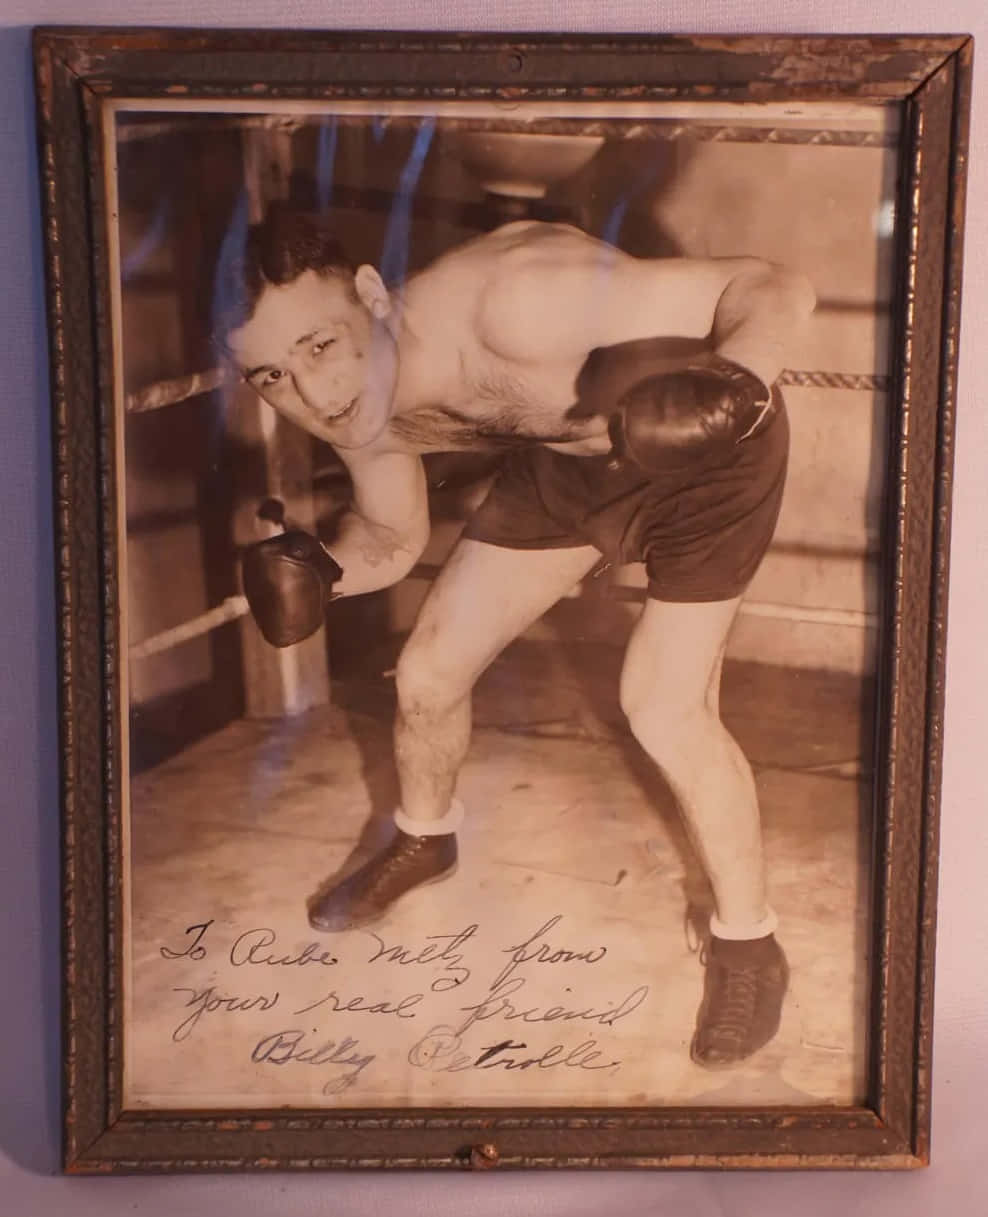 To Rube Metz from
Your real friend
Billy Petrolle.